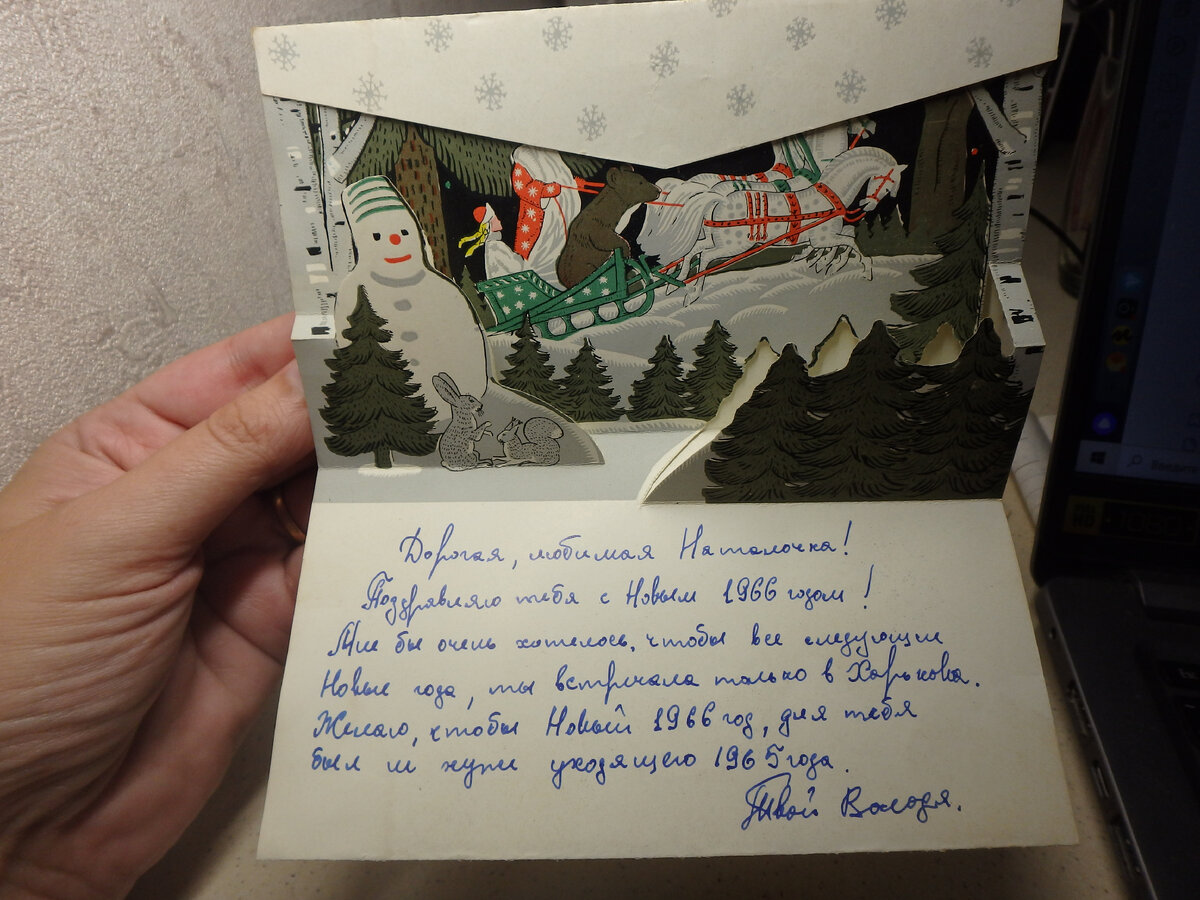 Дорогая, любимая Наталочка!
Поздравляю тебя с Новым 1966 годом!
Мне бы очень хотелось, чтобы все следующие
Новые года, ты встречала только в Харькове.
Желаю, чтобы Новый 1966 год, для тебя
был не хуже уходящего 1965 года.
Твой Володя.
HD